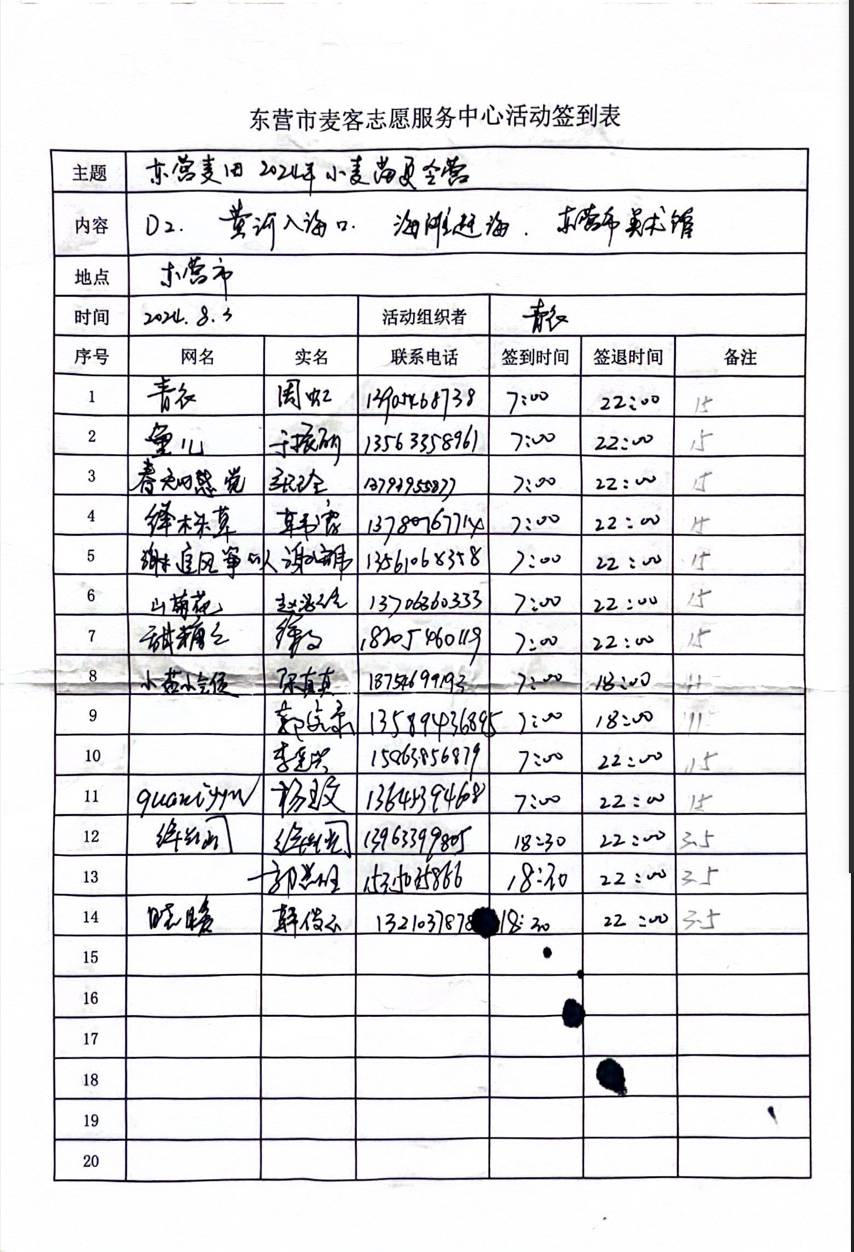 东营市麦客志愿服务中心活动签到表
主题 东营麦田2024年小麦苗夏令营
内容 D2. 黄河入海口. 海滩赶海. 东营市美术馆
地点 东营市
时间 2024.8.3 活动组织者 青衣
序号 网名 实名 联系电话 签到时间 签退时间 备注
1 青衣 周虹 13905468738 7:00 22:00 15
2 童儿 于振丽 13563358961 7:00 22:00 15
3 春天的感觉 7:00 22:00 15
4 绛株草 13780767714 7:00 22:00 15
5 的人 13561068358 7:00 22:00 15
6 山菊花 13706360333 7:00 22:00 15
7 18205460119 7:00 22:00 15
8 陈真真 18754699193 7:00 18:00 11
9 13589436895 7:00 18:00 11
10 15863856879 7:00 22:00 15
11 杨玉文 7:00 22:00 15
12 13963399805 18:30 22:00 3.5
13 18:30 22:00 3.5
14 晓暖 韩俊云 1321037878 18:30 22:00 3.5
15
16
17
18
19
20